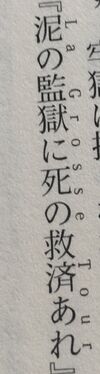 『泥の監獄に死の救済あれ』
La Grosse Tour